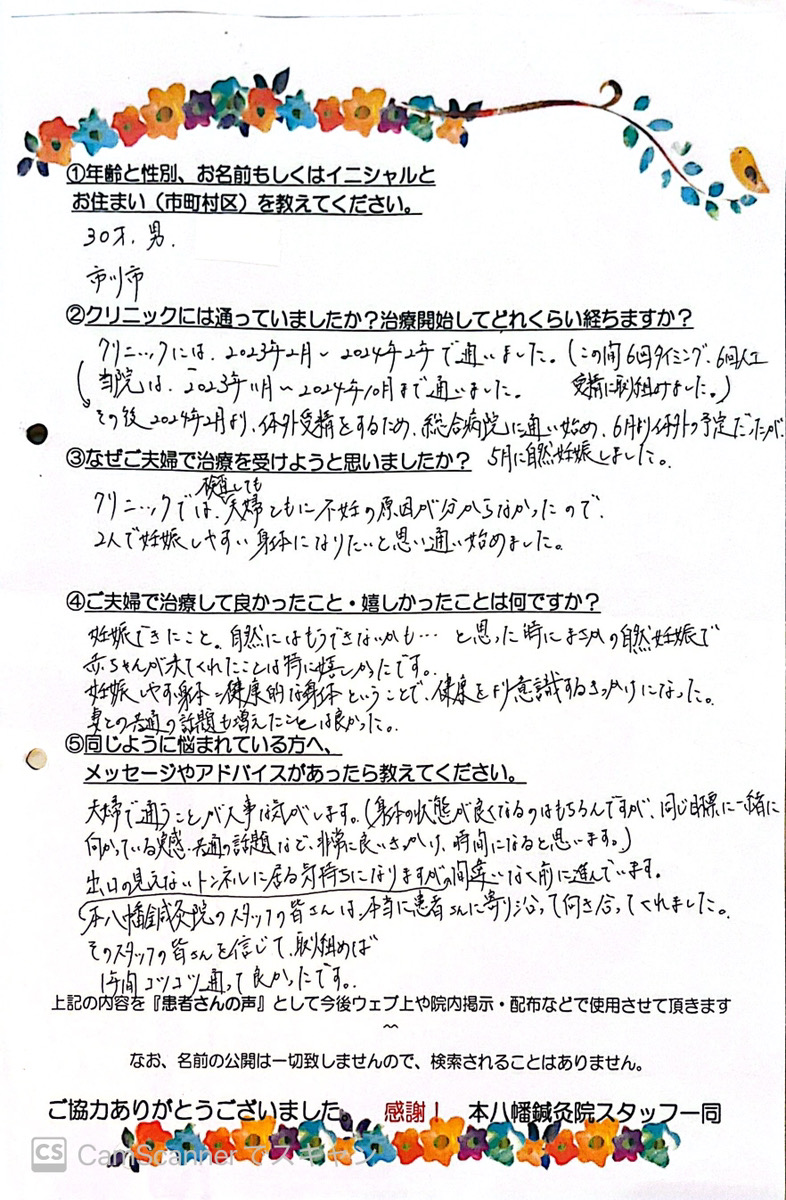 ①年齢と性別、お名前もしくはイニシャルと
お住まい（市町村区）を教えてください。
30才. 男.
市川市
②クリニックには通っていましたか？治療開始してどれくらい経ちますか？
クリニックには、2023年2月～2024年2年で通いました。（この間6回タイミング、6回人工
当院は、2023年11月～2024年10月まで通いました。 受精に取り組けました。）
その後2024年2月より、体外受精をするため、総合病院に通い始め、6月より体外の予定だったが、
③なぜご夫婦で治療を受けようと思いましたか？ 5月に自然妊娠しました。
検査しても
クリニックでは、夫婦ともに不妊の原因が分からなかったので、
2人で妊娠しやすい身体になりたいと思い通い始めました。
④ご夫婦で治療して良かったこと・嬉しかったことは何ですか？
妊娠できたこと。自然にはもうできないかも… と思った時にまさかの自然妊娠で
赤ちゃんが来てくれたことは特に嬉しかったです。
妊娠しやす身体＝健康的な身体ということで、健康をより意識するきっかけになった。
妻との共通の話題も増えたことは良かった。
⑤同じように悩まれている方へ、
メッセージやアドバイスがあったら教えてください。
夫婦で通うことが大事な気がします。（身体の状態が良くなるのはもちろんですが、同じ目標に一緒に
向かっている実感、共通の話題など、非常に良いきっかけ、時間になると思います。）
出口の見えないトンネルに居る気持ちになりますが、間違いなく前に進んでいます。
本八幡鍼灸院のスタッフの皆さんは、本当に患者さんに寄り沿って向き合ってくれました。
そのスタッフの皆さんを信じて、取り組めば
1年間コツコツ通って良かったです。
上記の内容を『患者さんの声』として今後ウェブ上や院内掲示・配布などで使用させて頂きます
～
なお、名前の公開は一切致しませんので、検索されることはありません。
ご協力ありがとうございました。 感謝！ 本八幡鍼灸院スタッフ一同
CS CamScanner でスキャン